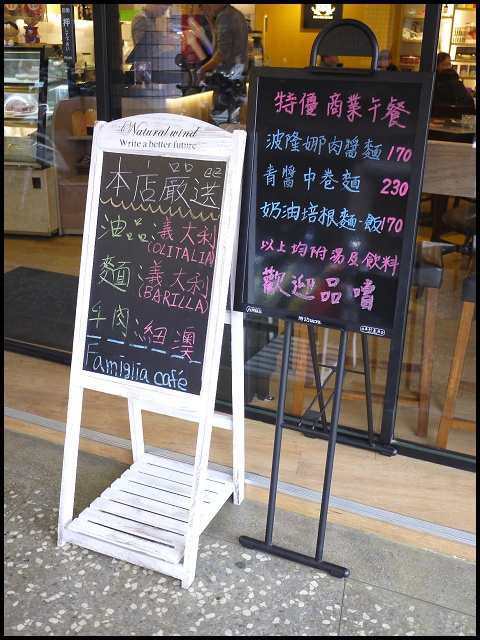 Natural wind
Write a better future
本店嚴選
油品:義大利
(OLITALIA)
麵:義大利
(BARILLA)
牛肉:紐澳
Famiglia café
特優商業午餐
波隆娜肉醬麵 170
青醬中卷麵 230
奶油培根麵-飯170
以上均附湯及飲料
歡迎品嚐